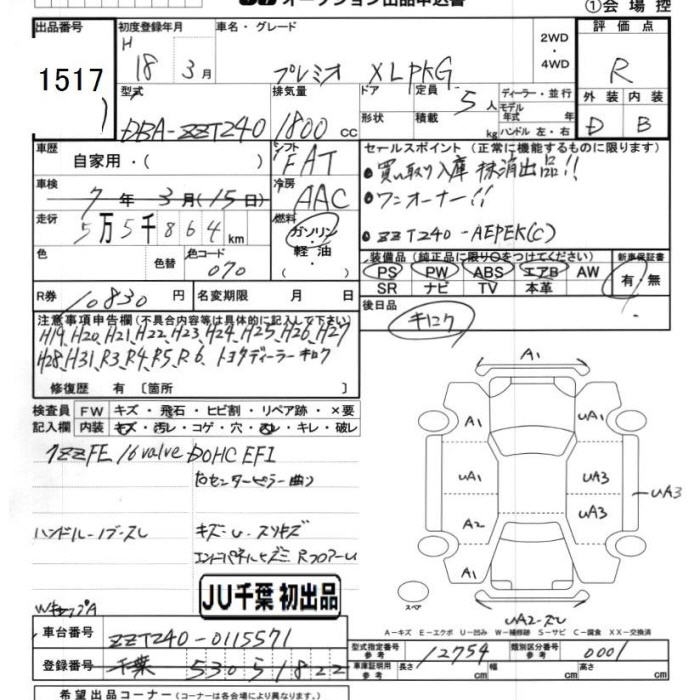 オークション出品申込書
①会場控
出品番号
1517
初度登録年月
H 18年 3月
車名・グレード
プレミオ XLPKG
2WD
・
4WD
評価点
R
外装 内装
D B
型式
DBA-ZZT240
排気量
1800 cc
ドア
形状
定員 5人
積載 kg
ディーラー・並行
モデル
年式 年
ハンドル 左・右
車歴
自家用・( )
シフト
FAT
車検
7年 3月(15日)
冷房
AAC
走行
5万5千864 km
燃料
ガソリン
・
軽油
色
色替
色コード
070
R券 10830円
名変期限 月 日
セールスポイント (正常に機能するものに限ります)
●買い取り入庫 抹消出品!!
●ワンオーナー!!
●ZZT240-AEPEK(C)
装備品 (純正品に限り○をつけてください)
PS PW ABS エアB AW
SR ナビ TV 本革
新車保証書
有・無
後日品
キロク
注意事項申告欄 (不具合内容等は具体的に記入して下さい)
H19, H20, H21, H22, H23, H24, H25, H26, H27
H28, H31, R3, R4, R5, R6, トヨタディーラーキロク
修復歴 有 〔箇所 〕
検査員
記入欄
FW キズ・飛石・ヒビ割・リペア跡・×要
内装 キズ・汚レ・コゲ・穴・汚レ・キレ・破レ
1ZZFE 16valve DOHC EFI
右センターピラー曲り
ハンドル・ノブ・スレ
キズ・U・スリキズ
エンドパネルヒズミ RフロアーU
WキャップA
JU千葉 初出品
A1
A1
UA1
UA1
UA3
A2
UA3
UA3
A1
スペア
UA2・スレ
A－キズ E－エクボ U－凹み W－補修跡 S－サビ C－腐食 XX－交換済
車台番号
ZZT240-0115571
登録番号
千葉 530 す 1822
型式指定番号
参考
12754
類別区分番号
参考
0001
車庫証明用
参考
長さ cm 幅 cm 高さ cm
希望出品コーナー (コーナーは各会場により異なります)